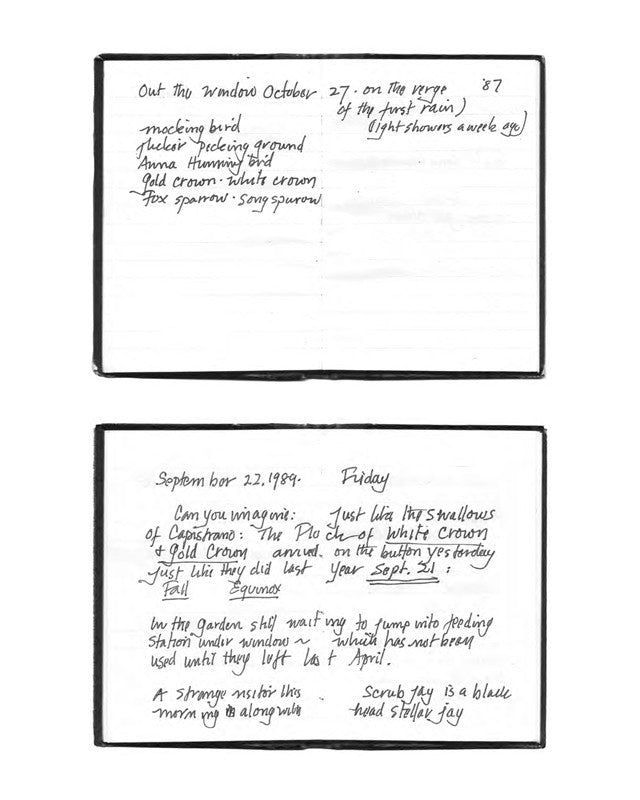 Out the window October 27 - on the verge '87
of the first rain)
(light showers a week ago)
mocking bird
flicker pecking ground
Anna Humming bird
gold crown - white crown
Fox sparrow - song spurow
September 22, 1989. Friday
Can you imagine: Just like the swallows
of Capistrano: The Flock of white crown
+ gold crown arrived on the button yesterday
just like they did last year Sept. 21:
Fall Equinox
In the garden still waiting to jump into feeding
station under window ~ which has not been
used until they left last April.
A strange visitor this Scrub Jay is a black
morning along with head stellar jay